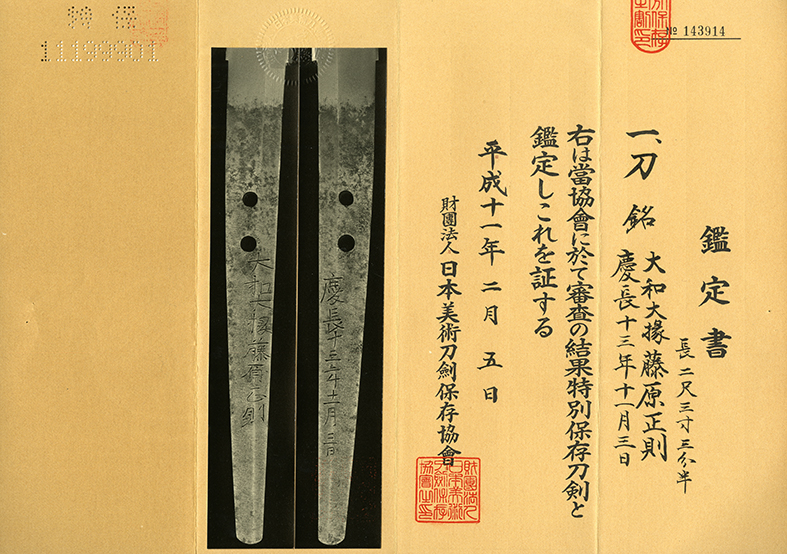 № 143914
鑑定書
長二尺三寸三分半
一、刀 銘 大和大掾藤原正則
慶長十三年十一月三日
右は當協會に於て審査の結果特別保存刀剣と
鑑定しこれを証する
平成十一年二月五日
財團法人日本美術刀劍保存協會
財團法人日本美術刀劍保存協會之印
慶長十三年十一月三日
大和大掾藤原正則
特保
11199901